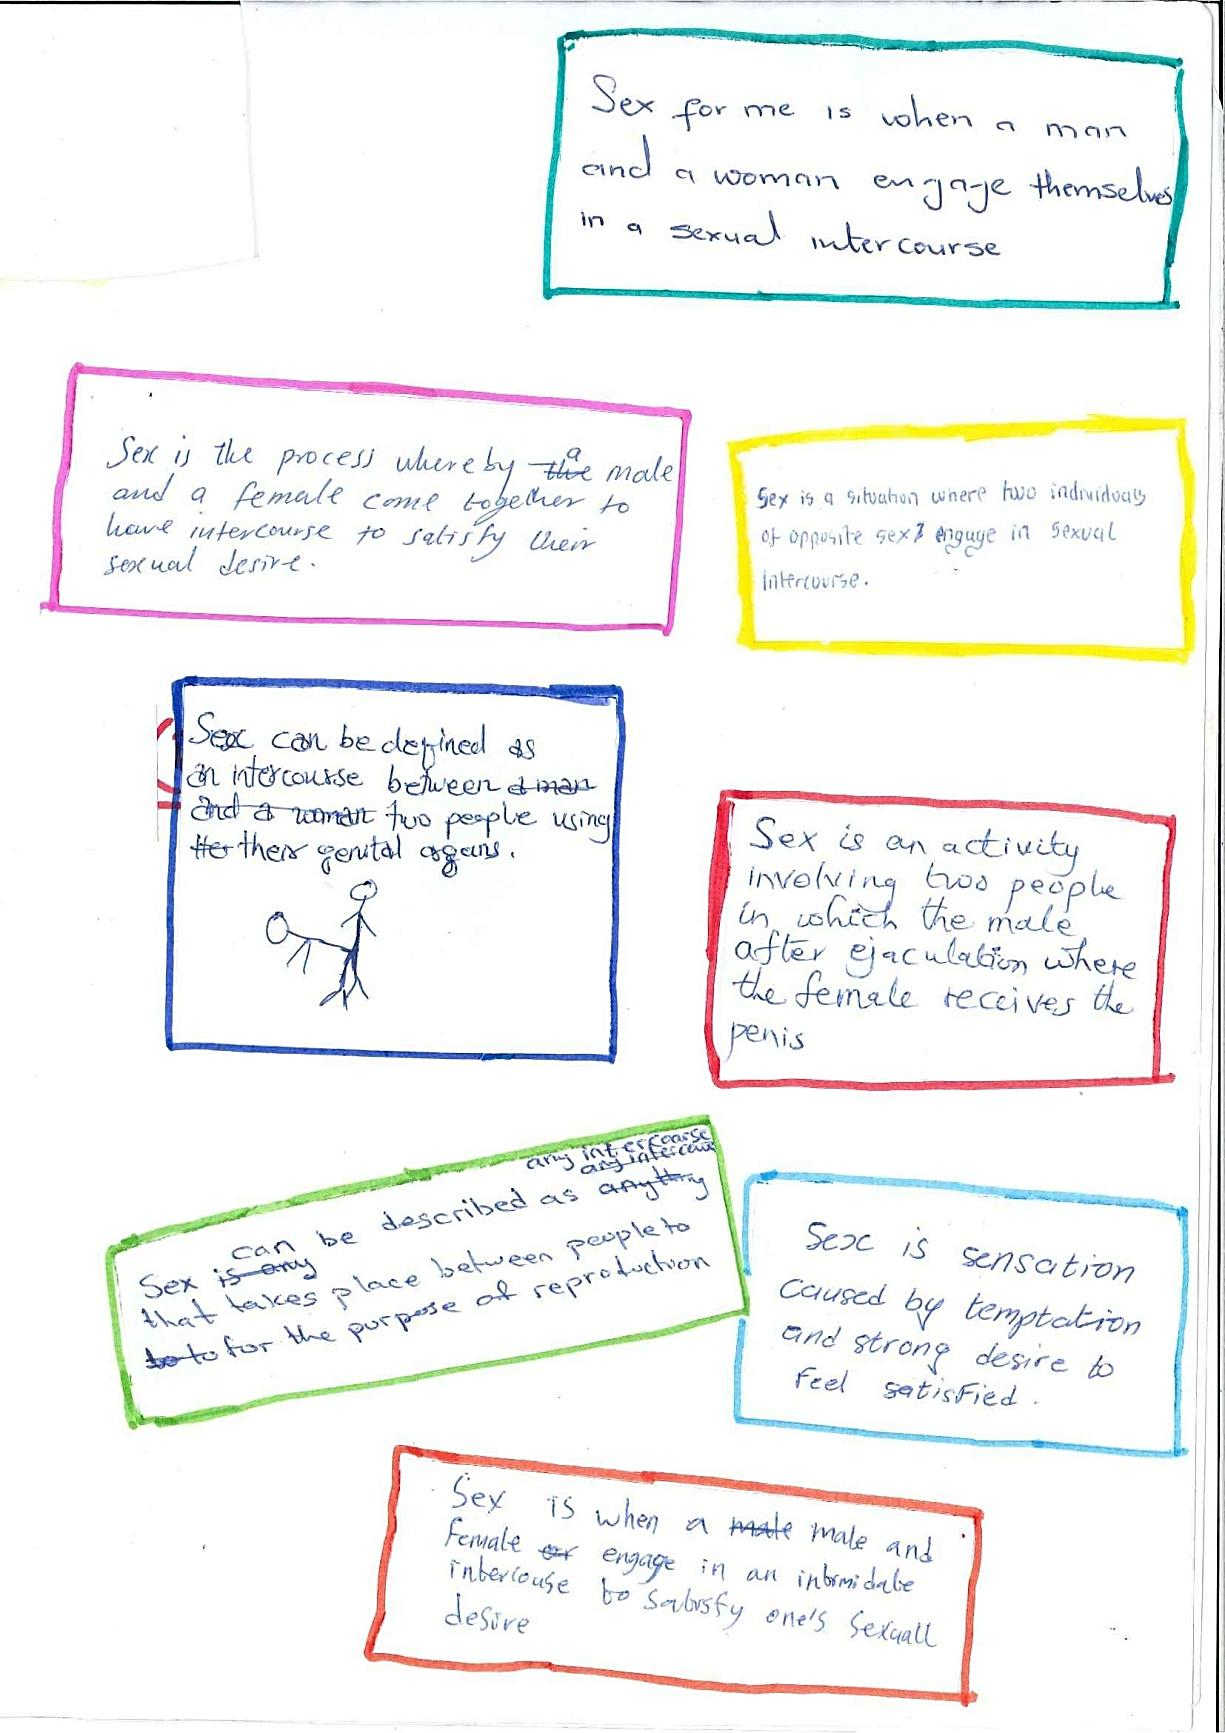 Sex for me is when a man
and a woman engage themselves
in a sexual intercourse
Sex is the process whereby the a male
and a female come together to
have intercourse to satisfy their
sexual desire.
Sex is a situation where two individuals
of opposite sex engage in sexual
intercourse.
Sex can be defined as
an intercourse between a man
and a woman two people using
their genital organs.
Sex is an activity
involving two people
in which the male
after ejaculation where
the female receives the
penis
any intercourse
any intercours
can be described as anything
Sex is any
that takes place between people to
to to for the purpose of reproduction
Sex is sensation
caused by temptation
and strong desire to
feel satisfied.
Sex is when a male male and
female or engage in an intimidate
intercouse to satisfy one's sexuall
desire